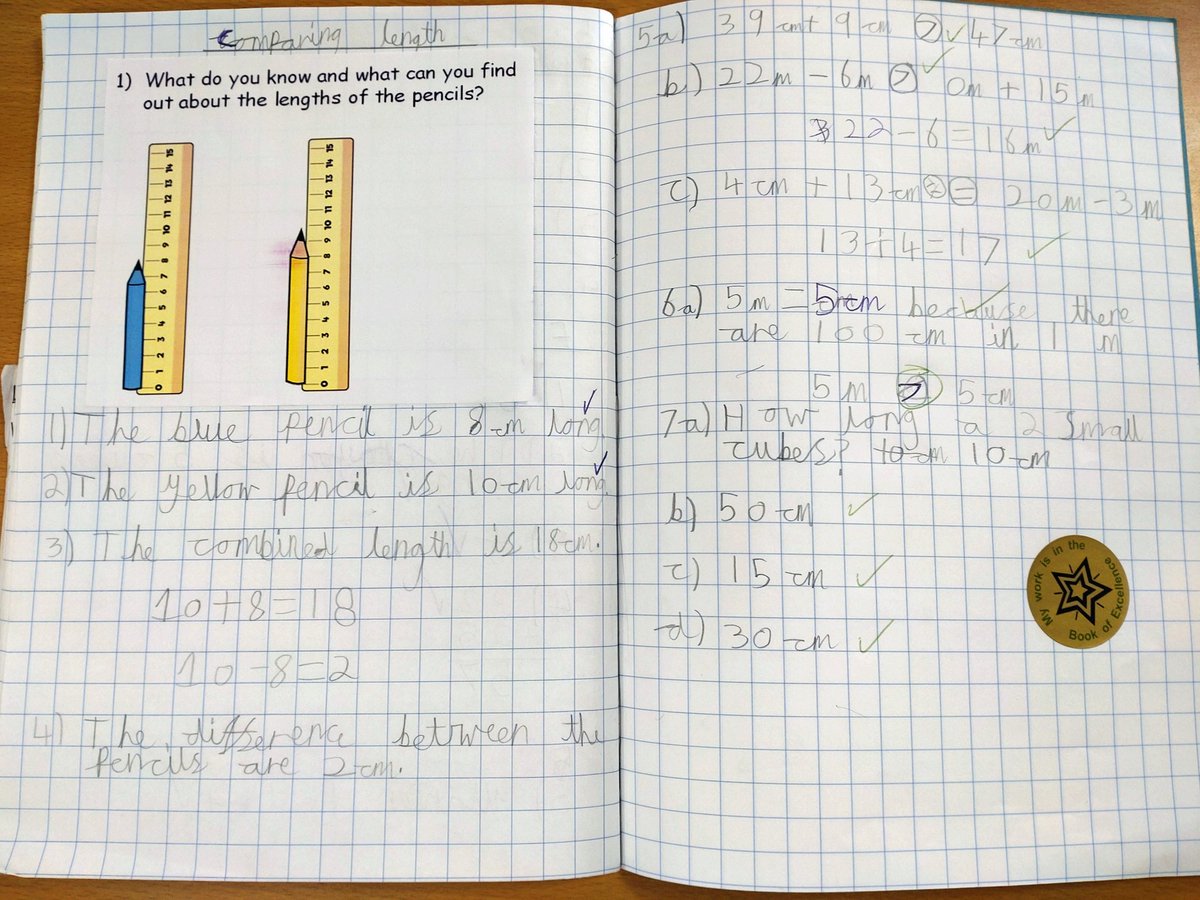 Comparing length
1) What do you know and what can you find
out about the lengths of the pencils?
0 1 2 3 4 5 6 7 8 9 10 11 12 13 14 15
0 1 2 3 4 5 6 7 8 9 10 11 12 13 14 15
1) The blue pencil is 8cm long
2) The yellow pencil is 10cm long
3) The combined length is 18cm.
10+8=18
10-8=2
4) The difference between the
pencils are 2cm.
5a) 39cm+ 9cm > ✓ 47cm
b) 22m - 6m > ✓ 0m + 15m
22-6=16m ✓
c) 4cm + 13cm = 20m-3m
13+4=17 ✓
6a) 5m = 5cm because there
are 100 cm in 1 m
5m > 5cm
7a) How long a 2 Small
cubes? to cm 10cm
b) 50cm ✓
c) 15cm ✓
d) 30cm ✓
My work is in the
Book of Excellence